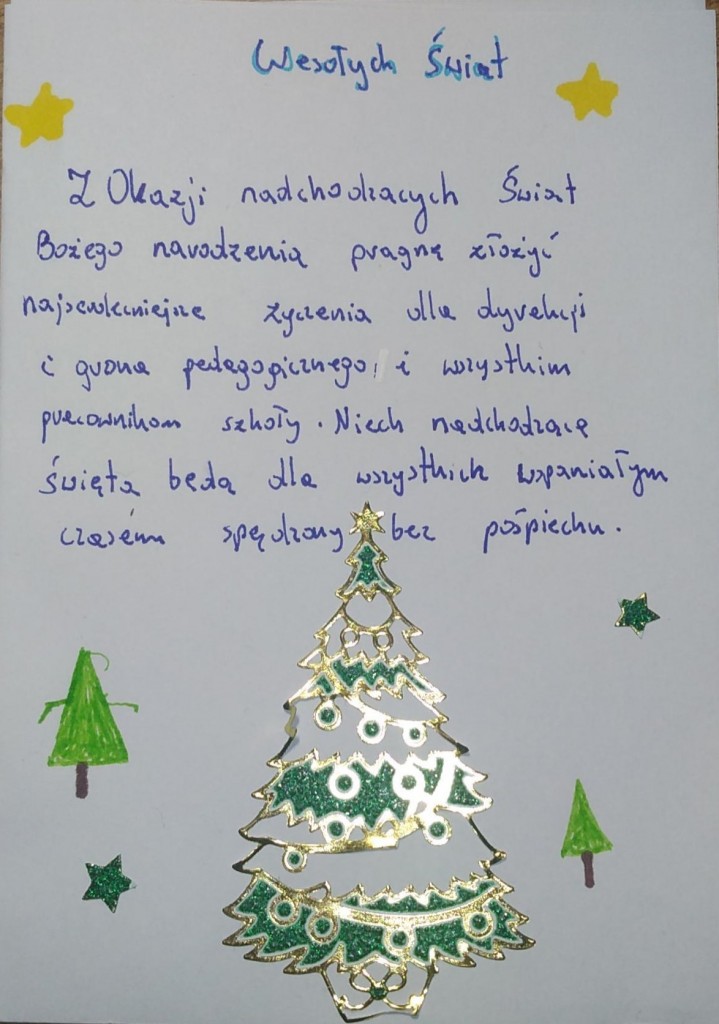 Wesołych Świat
Z Okazji nadchodzacych Świat
Bożego narodzenia pragnę złożyć
najserdeczniejsze życzenia dla dyrekcji
i grona pedagogicznego, i wszystkim
pracownikom szkoły. Niech nadchodzącę
święta będą dla wszystkich wspaniałym
czasem spędzony bez pośpiechu.